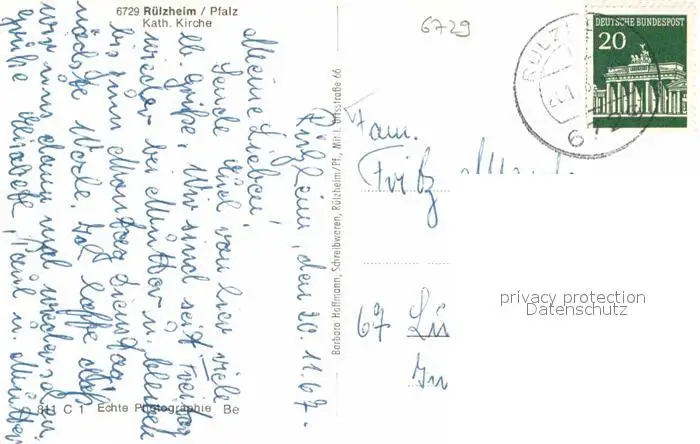 6729 Rülzheim / Pfalz
Kath. Kirche
6729
DEUTSCHE BUNDESPOST
20
RÜLZ
672
Rülzheim, den 20.11.67.
Meine Lieben!
Sende Euch von hier viele
lb. Grüße. Wir sind seit Freitag
wieder bei Mutter u. bleiben
bis zum Montag Dienstag
nächste Woche. Ich hoffe daß
wir uns dann mal wieder
Grüße Elisabeth, Paul u. Mutter
Barbara Hoffmann, Schreibwaren, Rülzheim/Pf., Mittl. Ortsstraße 66
Fam.
Fritz
67 Lu
811 C 1 Echte Photographie Be
privacy protection
Datenschutz